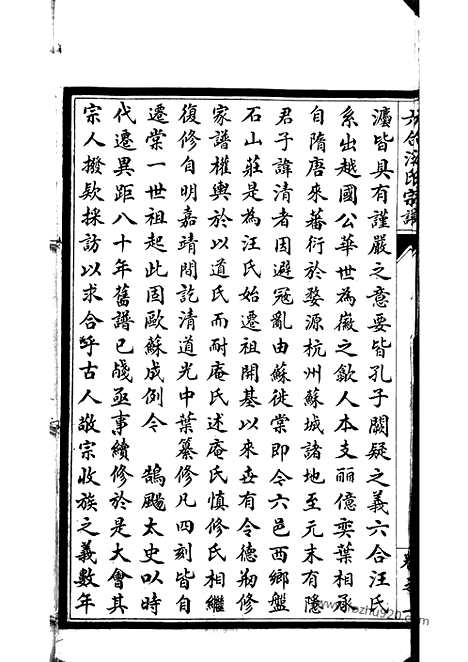 六合汪氏宗譜
瀍皆具有謹嚴之意要皆孔子闕疑之義六合汪氏
系出越國公華世為徽之歙人本支丽億奕葉相承
自隋唐來蕃衍於婺源杭州蘇城諸地至元末有隱
君子諱清者因避冦亂由蘇徙棠即今六邑西鄉盤
石山莊是為汪氏始遷祖開基以來世有令德剏修
家譜權輿於以道氏而耐庵氏述庵氏慎修氏相繼
復修自明嘉靖間訖清道光中葉纂修凡四刻皆自
遷棠一世祖起此固歐蘇成例今 鵠颺太史以時
代遷異距八十年舊譜已殘亟事續修於是大會其
宗人撥欵採訪以求合乎古人敬宗收族之義數年